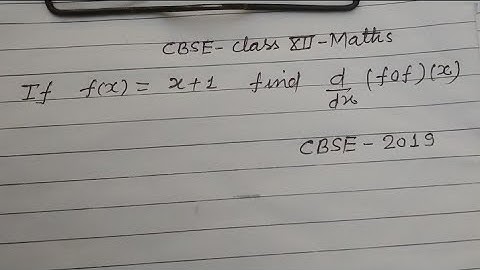 CBSE - Class XII - Maths
If f(x) = x+1 find d/dx (fof)(x)
CBSE - 2019